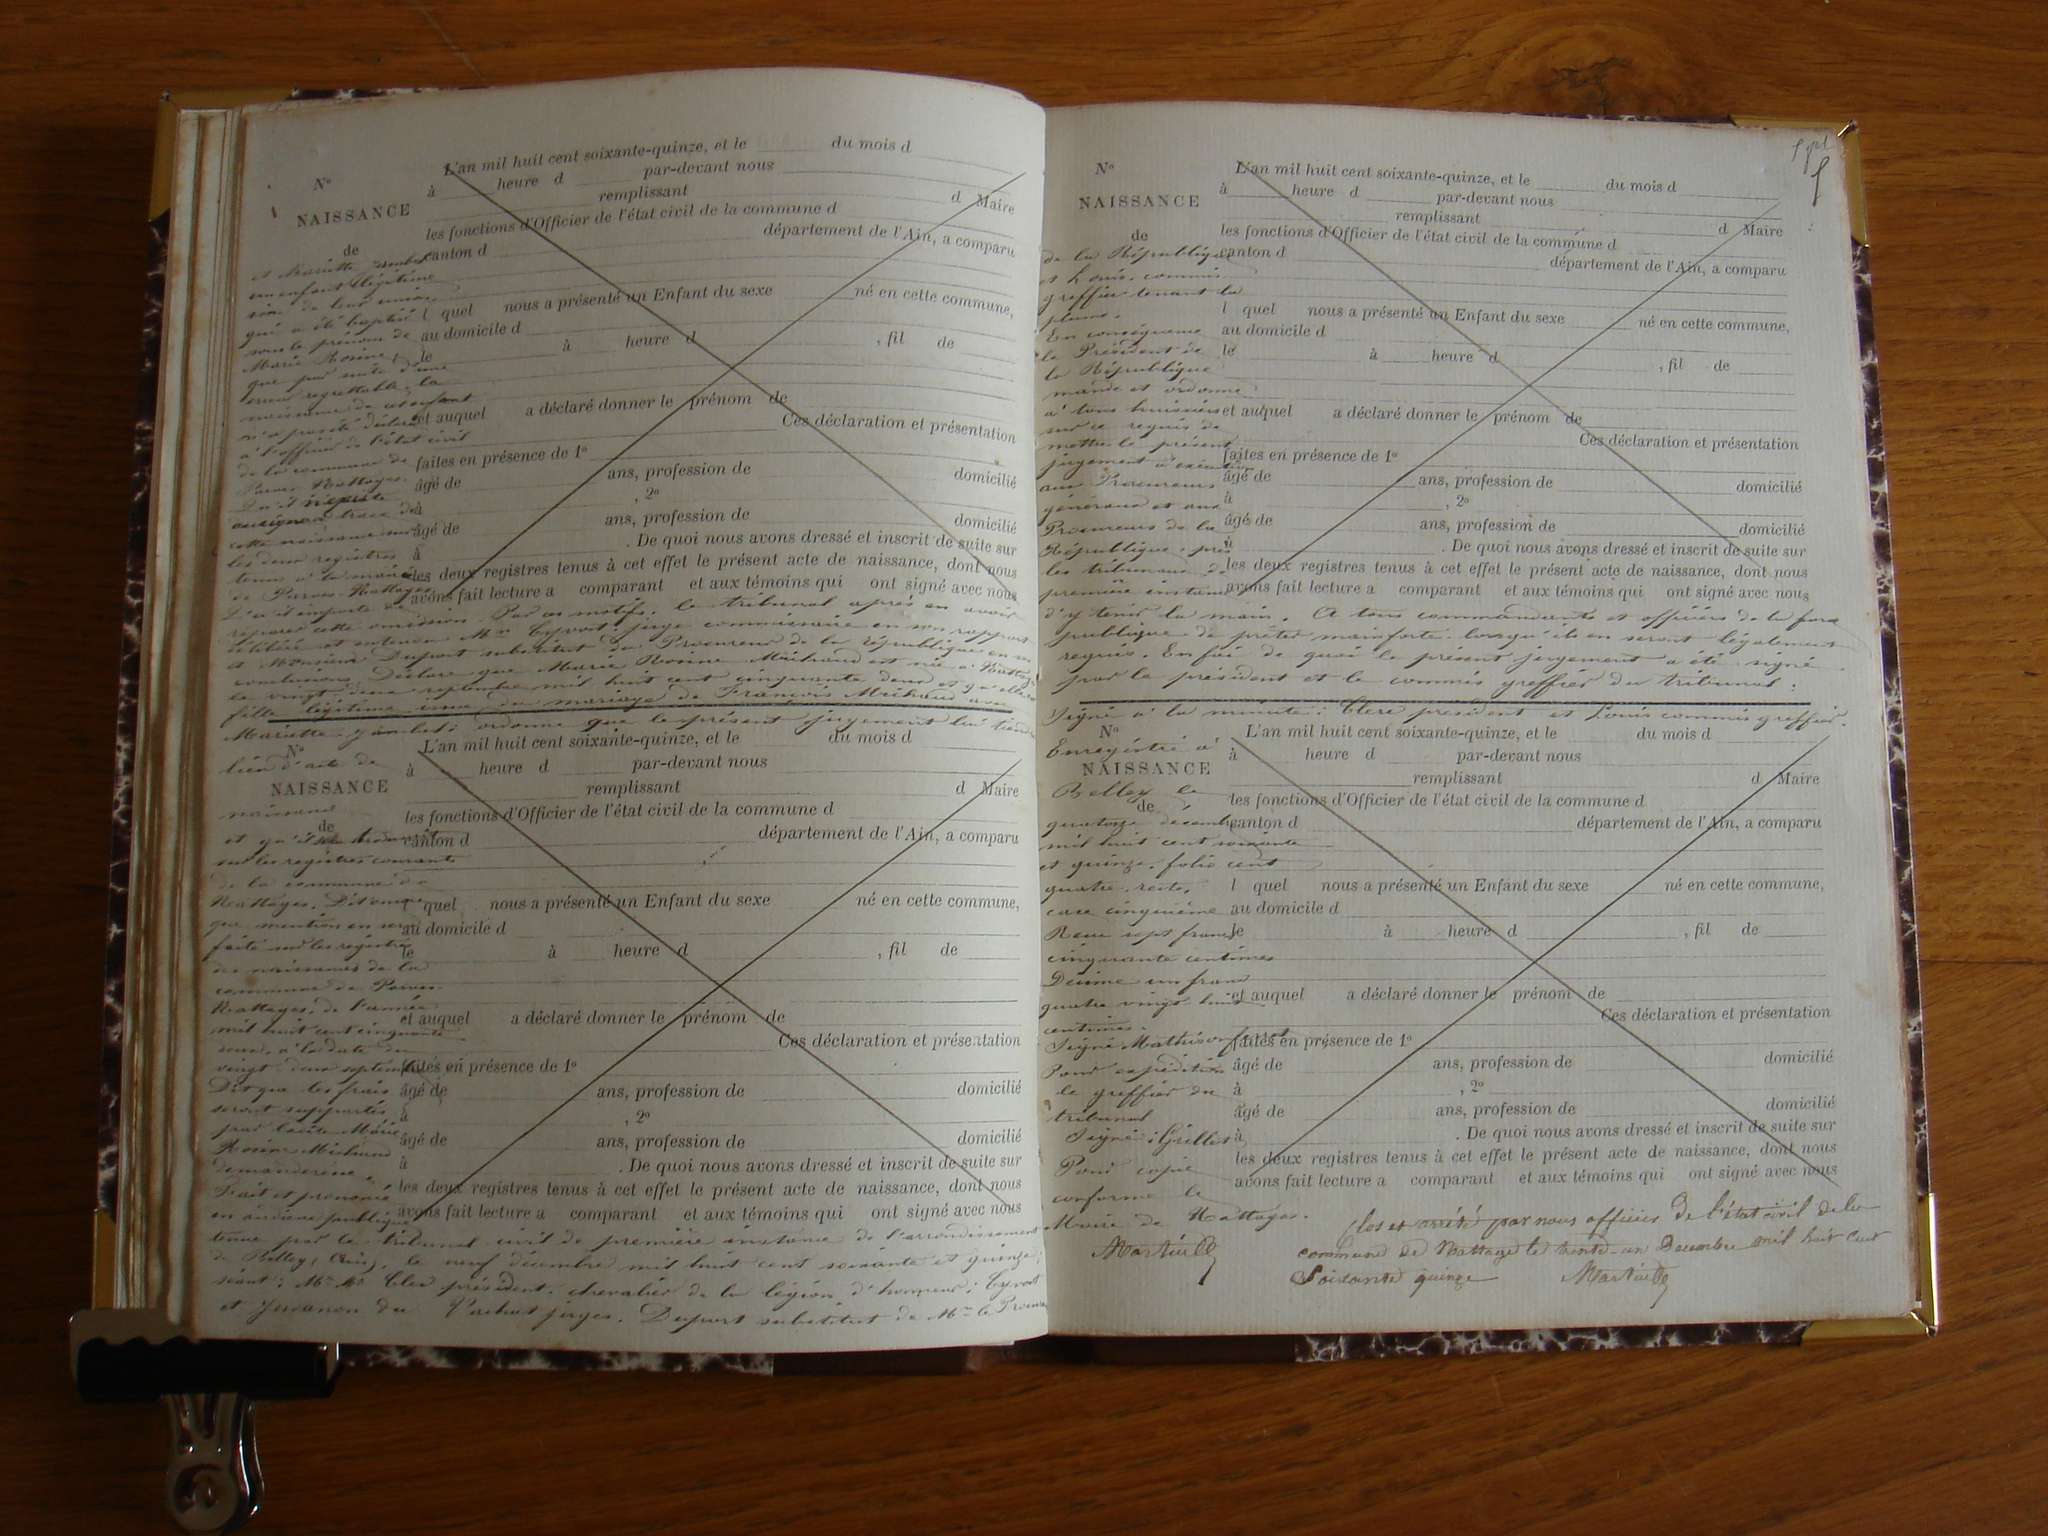 N°
NAISSANCE
de
L'an mil huit cent soixante-quinze, et le du mois d
à heure d par-devant nous
remplissant d Maire
les fonctions d'Officier de l'état civil de la commune d
canton d département de l'Ain, a comparu
l quel nous a présenté un Enfant du sexe né en cette commune,
au domicile d
le à heure d , fil de
et auquel a déclaré donner le prénom de
Ces déclaration et présentation
faites en présence de 1°
âgé de ans, profession de domicilié
à , 2°
âgé de ans, profession de domicilié
à . De quoi nous avons dressé et inscrit de suite sur
les deux registres tenus à cet effet le présent acte de naissance, dont nous
avons fait lecture a comparant et aux témoins qui ont signé avec nous
et Mariette
un enfant légitime
de leur union
qui a été baptisé
sous le prénom de
Marie Rosine,
que par suite d'une
erreur regrettable, la
naissance de cet enfant
n'a pas été déclarée
à l'officier de l'état civil
de la commune de
Parves Nattages.
Qu'il n'existe
aucune trace de
cette naissance sur
les deux registres
tenus à la mairie
de Parves-Nattages
Qu'il importe de
réparer cette omission. Par ces motifs, le tribunal après en avoir
délibéré et entendu Mr Cyvoct, juge commissaire en son rapport
et Monsieur Dupont substitut du Procureur de la république en ses
conclusions, Déclare que Marie Rosine Michaud est née à Nattages
le vingt deux septembre mil huit cent cinquante deux et qu'elle est
fille légitime issue du mariage de François Michaud avec
Mariette ordonne que le présent jugement lui tiendra
N°
NAISSANCE
de
L'an mil huit cent soixante-quinze, et le du mois d
à heure d par-devant nous
remplissant d Maire
les fonctions d'Officier de l'état civil de la commune d
canton d département de l'Ain, a comparu
l quel nous a présenté un Enfant du sexe né en cette commune,
au domicile d
le à heure d , fil de
et auquel a déclaré donner le prénom de
Ces déclaration et présentation
faites en présence de 1°
âgé de ans, profession de domicilié
à , 2°
âgé de ans, profession de domicilié
à . De quoi nous avons dressé et inscrit de suite sur
les deux registres tenus à cet effet le présent acte de naissance, dont nous
avons fait lecture a comparant et aux témoins qui ont signé avec nous
lieu d'acte de
naissance
et qu'il sera
sur les registres courants
de la commune de
Nattages. Dit encore
que mention en sera
faite sur les registres
des naissances de la
commune de Parves
Nattages, de l'année
mil huit cent cinquante
deux, à la date du
vingt deux septembre
Dit que les frais
seront supportés
par Marie
Rosine Michaud
demanderesse.
Fait et prononcé
en audience publique
tenue par le tribunal civil de première instance de l'arrondissement
de Belley, (Ain), le neuf décembre mil huit cent soixante et quinze;
séant: Mr Clerc président, chevalier de la légion d'honneur; Cyvoct
et Jusanon du Vachat juges. Dupont substitut de Mr le Procureur
N°
NAISSANCE
de
L'an mil huit cent soixante-quinze, et le du mois d
à heure d par-devant nous
remplissant d Maire
les fonctions d'Officier de l'état civil de la commune d
canton d département de l'Ain, a comparu
l quel nous a présenté un Enfant du sexe né en cette commune,
au domicile d
le à heure d , fil de
et auquel a déclaré donner le prénom de
Ces déclaration et présentation
faites en présence de 1°
âgé de ans, profession de domicilié
à , 2°
âgé de ans, profession de domicilié
à . De quoi nous avons dressé et inscrit de suite sur
les deux registres tenus à cet effet le présent acte de naissance, dont nous
avons fait lecture a comparant et aux témoins qui ont signé avec nous
de la République
et Louis, commis
greffier tenant la
plume.
En conséquence
le Président de
la République
mande et ordonne
à tous huissiers
sur ce requis de
mettre le présent
jugement à exécution
aux Procureurs
généraux et aux
Procureurs de la
République, près
les tribunaux de
première instance
d'y tenir la main. A tous commandants et officiers de la force
publique de prêter mainforte lorsqu'ils en seront légalement
requis. En foi de quoi le présent jugement a été signé
par le président et le commis greffier du tribunal:
Signé à la minute: Clerc président et Louis commis greffier.
N°
NAISSANCE
de
L'an mil huit cent soixante-quinze, et le du mois d
à heure d par-devant nous
remplissant d Maire
les fonctions d'Officier de l'état civil de la commune d
canton d département de l'Ain, a comparu
l quel nous a présenté un Enfant du sexe né en cette commune,
au domicile d
le à heure d , fil de
et auquel a déclaré donner le prénom de
Ces déclaration et présentation
faites en présence de 1°
âgé de ans, profession de domicilié
à , 2°
âgé de ans, profession de domicilié
à . De quoi nous avons dressé et inscrit de suite sur
les deux registres tenus à cet effet le présent acte de naissance, dont nous
avons fait lecture a comparant et aux témoins qui ont signé avec nous
Enregistré à
Belley le
quatorze décembre
mil huit cent soixante
et quinze, folio cent
quatre, recto,
case cinquième
Reçu sept francs
cinquante centimes
Décime un franc
quatre vingt huit
centimes.
Signé
Pour expédition
le greffier du
tribunal
Signé: Grillet
Pour copie
conforme le
Maire de Nattages.
Clos et arrêté par nous officier de l'état civil de la
commune de Nattage le trente-un Décembre mil huit cent
Soixante quinze